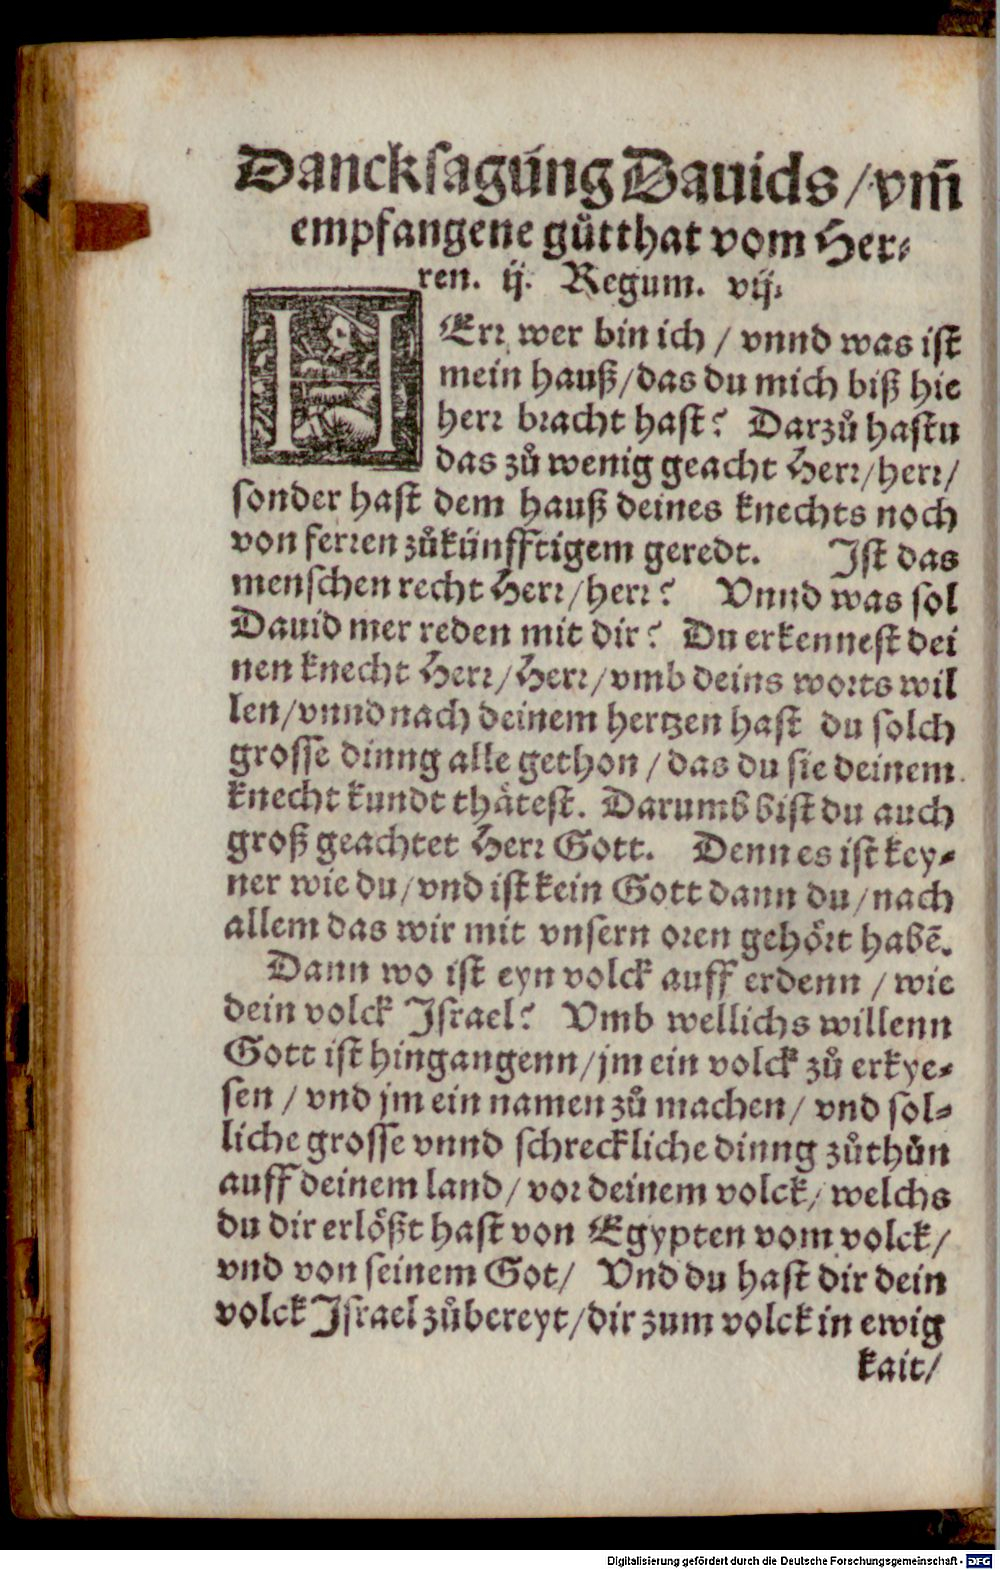 Dancksagung Dauids / vm̄
empfangene gůtthat vom Her⸗
ren. ij. Regum. vij.
HErr wer bin ich / vnnd was ist
mein hauß / das du mich biß hie
herr bracht hast? Darzů hastu
das zů wenig geacht Herr / herr /
sonder hast dem hauß deines knechts noch
von ferren zůkünfftigem geredt. Ist das
menschen recht Herr / herr? Vnnd was sol
Dauid mer reden mit dir? Du erkennest dei
nen knecht Herr / Herr / vmb deins worts wil
len / vnnd nach deinem hertzen hast du solch
grosse dinng alle gethon / das du sie deinem
knecht kundt thåtest. Darumb bist du auch
groß geachtet Herr Gott. Denn es ist key⸗
ner wie du / vnd ist kein Gott dann du / nach
allem das wir mit vnsern oren gehört habē.
Dann wo ist eyn volck auff erdenn / wie
dein volck Israel? Vmb wellichs willenn
Gott ist hingangenn / jm ein volck zů erkye⸗
sen / vnd jm ein namen zů machen / vnd sol⸗
liche grosse vnnd schreckliche dinng zůthůn
auff deinem land / vor deinem volck / welchs
du dir erlößt hast von Egypten vom volck /
vnd von seinem Got / Vnd du hast dir dein
volck Israel zůbereyt / dir zum volck in ewig
kait /
Digitalisierung gefördert durch die Deutsche Forschungsgemeinschaft - DFG